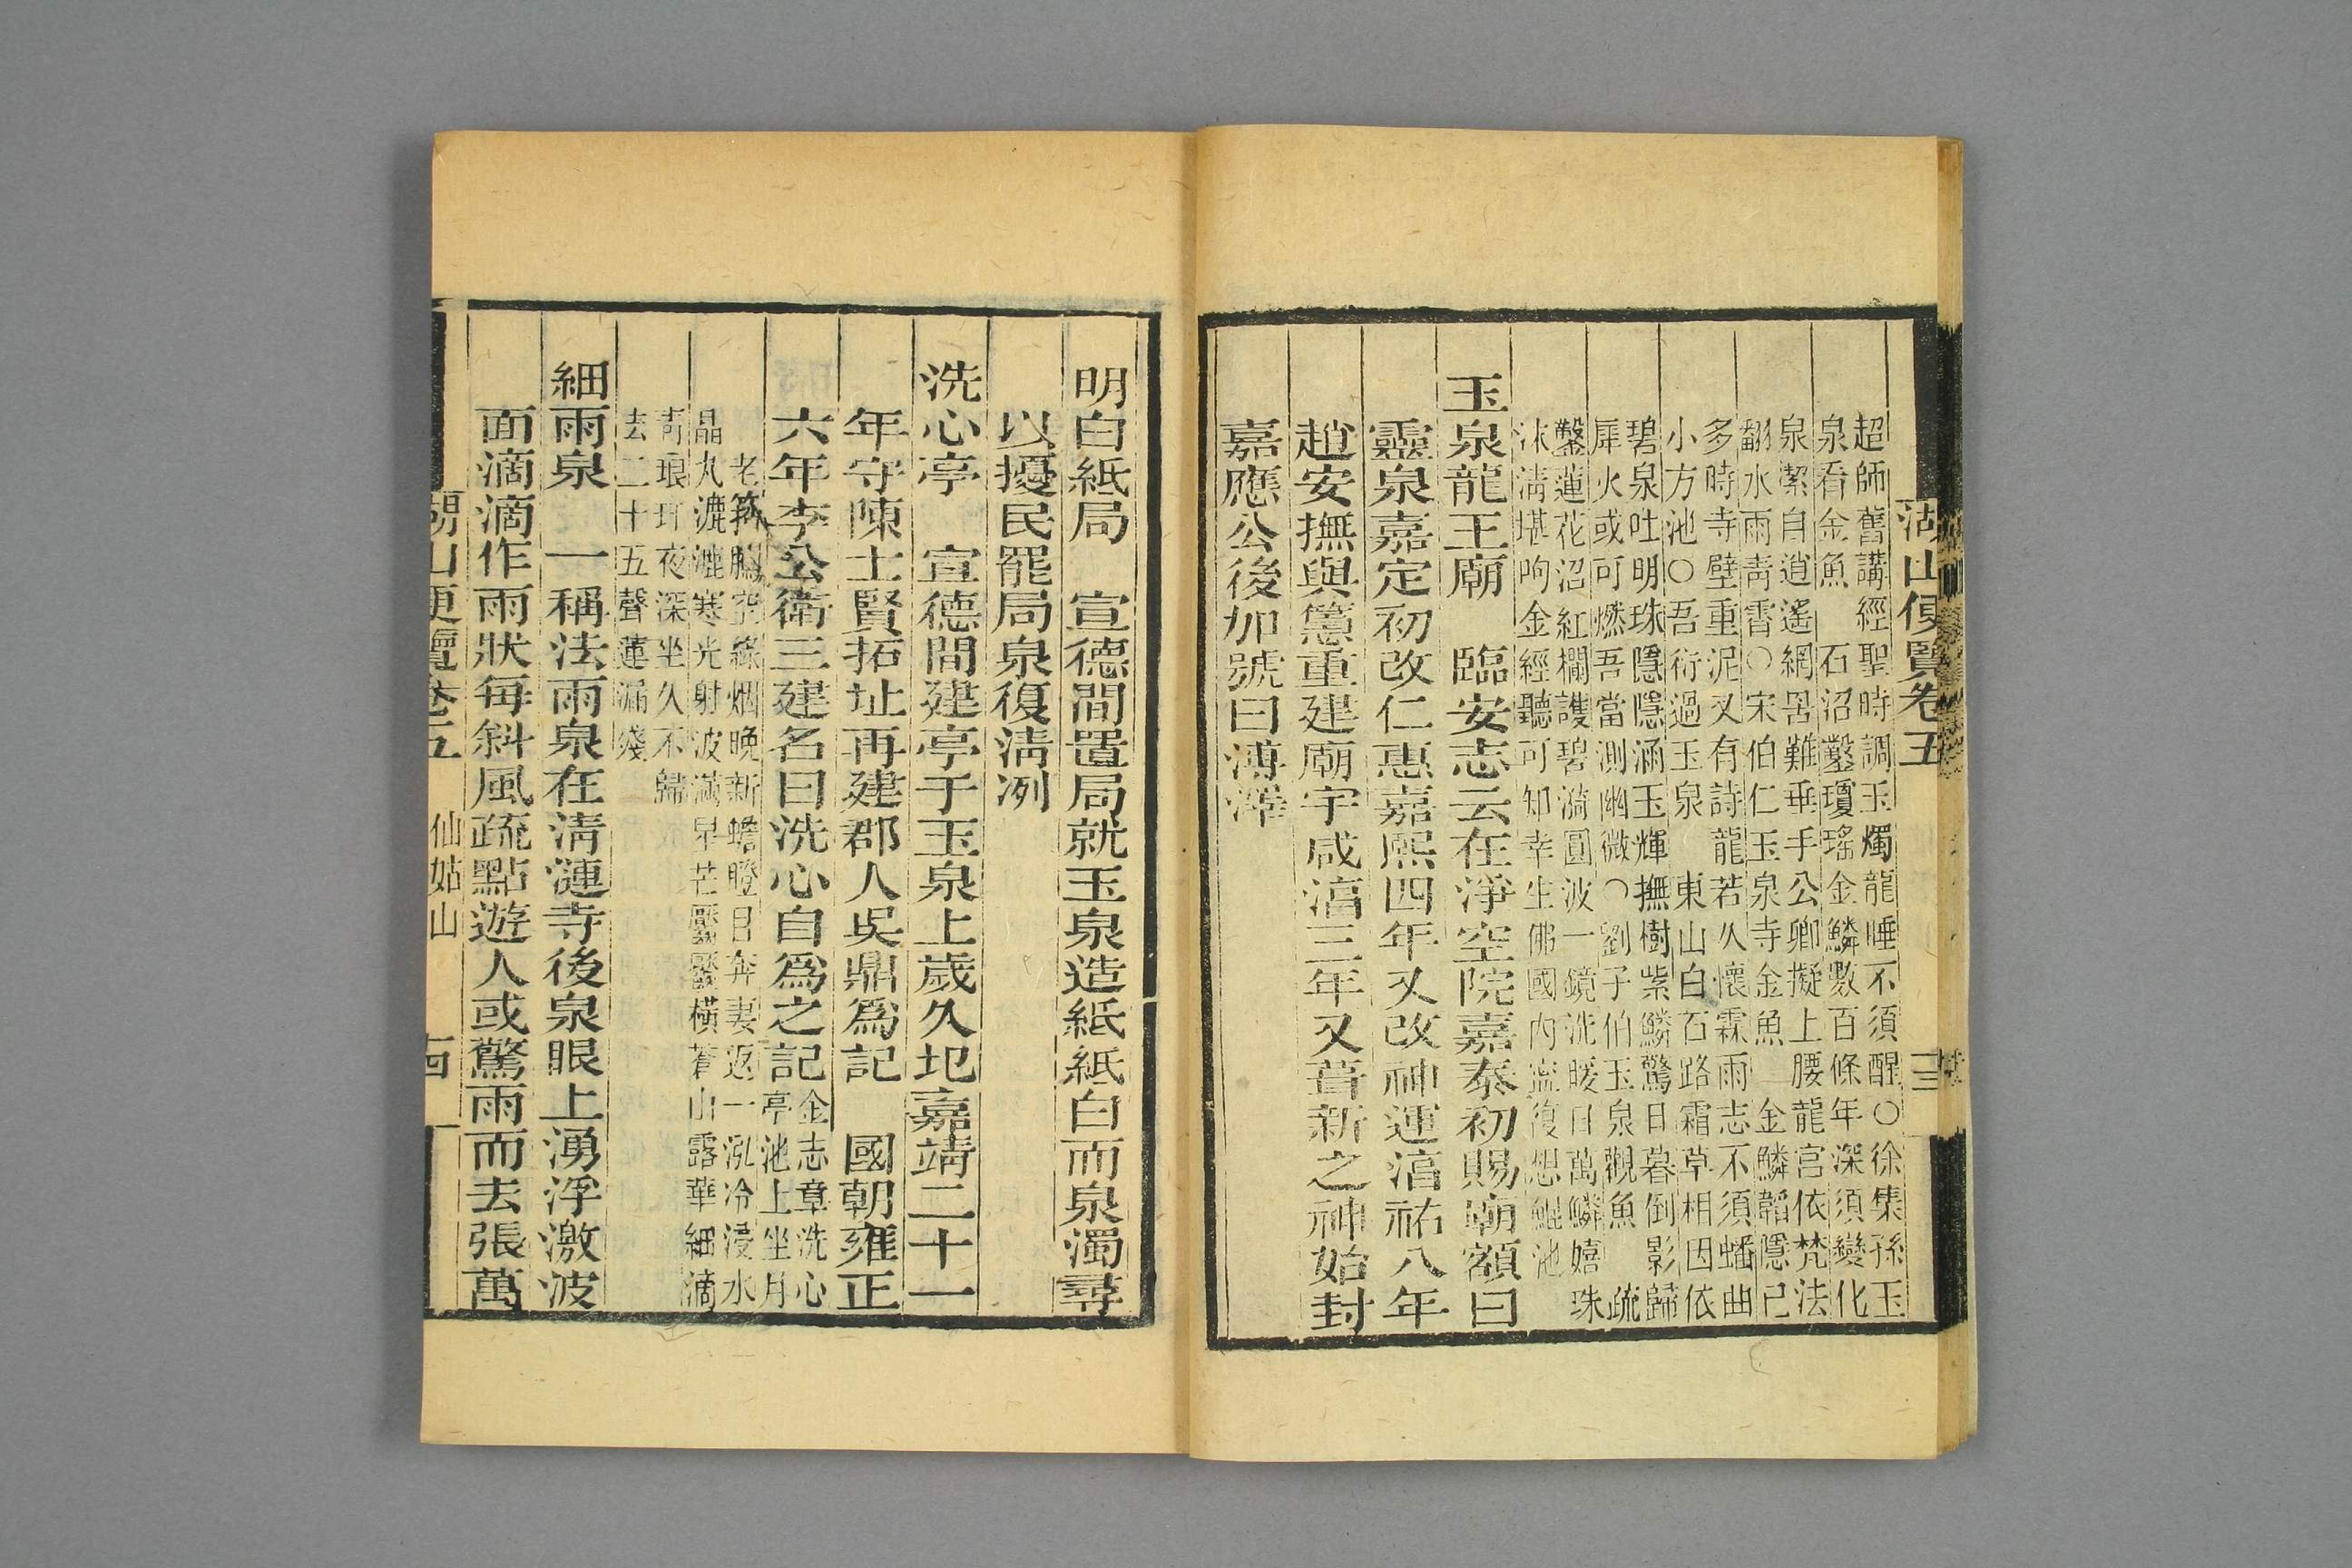 湖山便覽卷五
十三
超師舊講經聖時調玉燭龍睡不須醒○徐集孫玉
泉看金魚　石沼鑿瓊瑤金鱗數百條年深須變化
泉潔自逍遙網罟難垂手公卿擬上腰龍宮依梵法
翻水雨靑霄○宋伯仁玉泉寺金魚　金鱗韜隱已
多時寺壁重泥又有詩龍若久懷霖雨志不須蟠曲
小方池○吾衍過玉泉　東山白石路霜草相因依
碧泉吐明珠隱隱涵玉輝撫樹紫鱗驚日暮倒影歸
犀火或可燃吾當測幽微○劉子伯玉泉觀魚　疏
鑿蓮花沼紅欄護碧漪圓波一鏡洗暖日萬鱗嬉珠
沫淸堪呴金經聽可知幸生佛國內遑復想鯤池
玉泉龍王廟　臨安志云在淨空院嘉泰初賜廟額曰
靈泉嘉定初改仁惠嘉熙四年又改神運湻祐八年
趙安撫與𥲅重建廟宇咸湻三年又葺新之神始封
嘉應公後加號曰溥澤
明白紙局　宣德間置局就玉泉造紙紙白而泉濁尋
以擾民罷局泉復淸冽
洗心亭　宣德間建亭于玉泉上歲久圯嘉靖二十一
年守陳士賢拓址再建郡人吳鼎爲記　國朝雍正
六年李公衛三建名曰洗心自爲之記金志章洗心
亭池上坐月
老鶴飜空綠烟晚新蟾瞪目奔妻返一泓冷浸水
晶丸漉漉寒光射波滿星芒壓鬢橫蒼山露華細滴
靑琅玕夜深坐久不歸
去二十五聲蓮漏殘
細雨泉　一稱法雨泉在淸漣寺後泉眼上湧浮激波
面滴滴作雨狀每斜風疏點遊人或驚雨而去張萬
湖山便覽卷五　仙姑山
十四